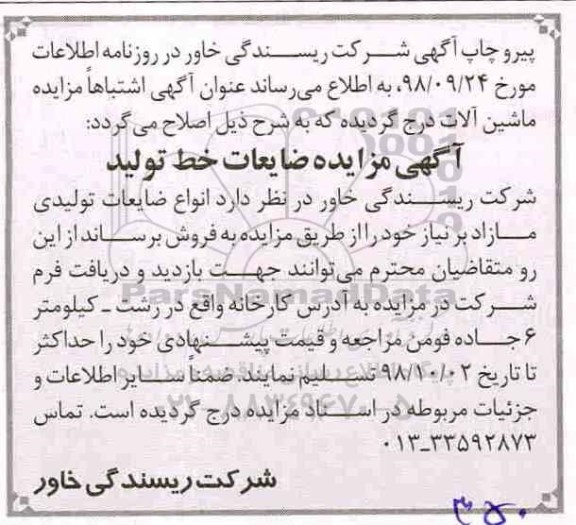 پیرو چاپ آگهی شرکت ریسندگی خاور در روزنامه اطلاعات
مورخ ۹۸/۰۹/۲۴، به اطلاع می‌رساند عنوان آگهی اشتباهاً مزایده
ماشین آلات درج گردیده که به شرح ذیل اصلاح می‌گردد:
آگهی مزایده ضایعات خط تولید
شرکت ریسندگی خاور در نظر دارد انواع ضایعات تولیدی
مازاد بر نیاز خود را از طریق مزایده به فروش برساند از این
رو متقاضیان محترم می‌توانند جهت بازدید و دریافت فرم
شرکت در مزایده به آدرس کارخانه واقع در رشت ـ کیلومتر
۶ جاده فومن مراجعه و قیمت پیشنهادی خود را حداکثر
تا تاریخ ۹۸/۱۰/۰۲ تسلیم نمایند. ضمناً سایر اطلاعات و
جزئیات مربوطه در اسناد مزایده درج گردیده است. تماس
۰۱۳-۳۳۵۹۲۸۷۳
شرکت ریسندگی خاور
ParsNamadData